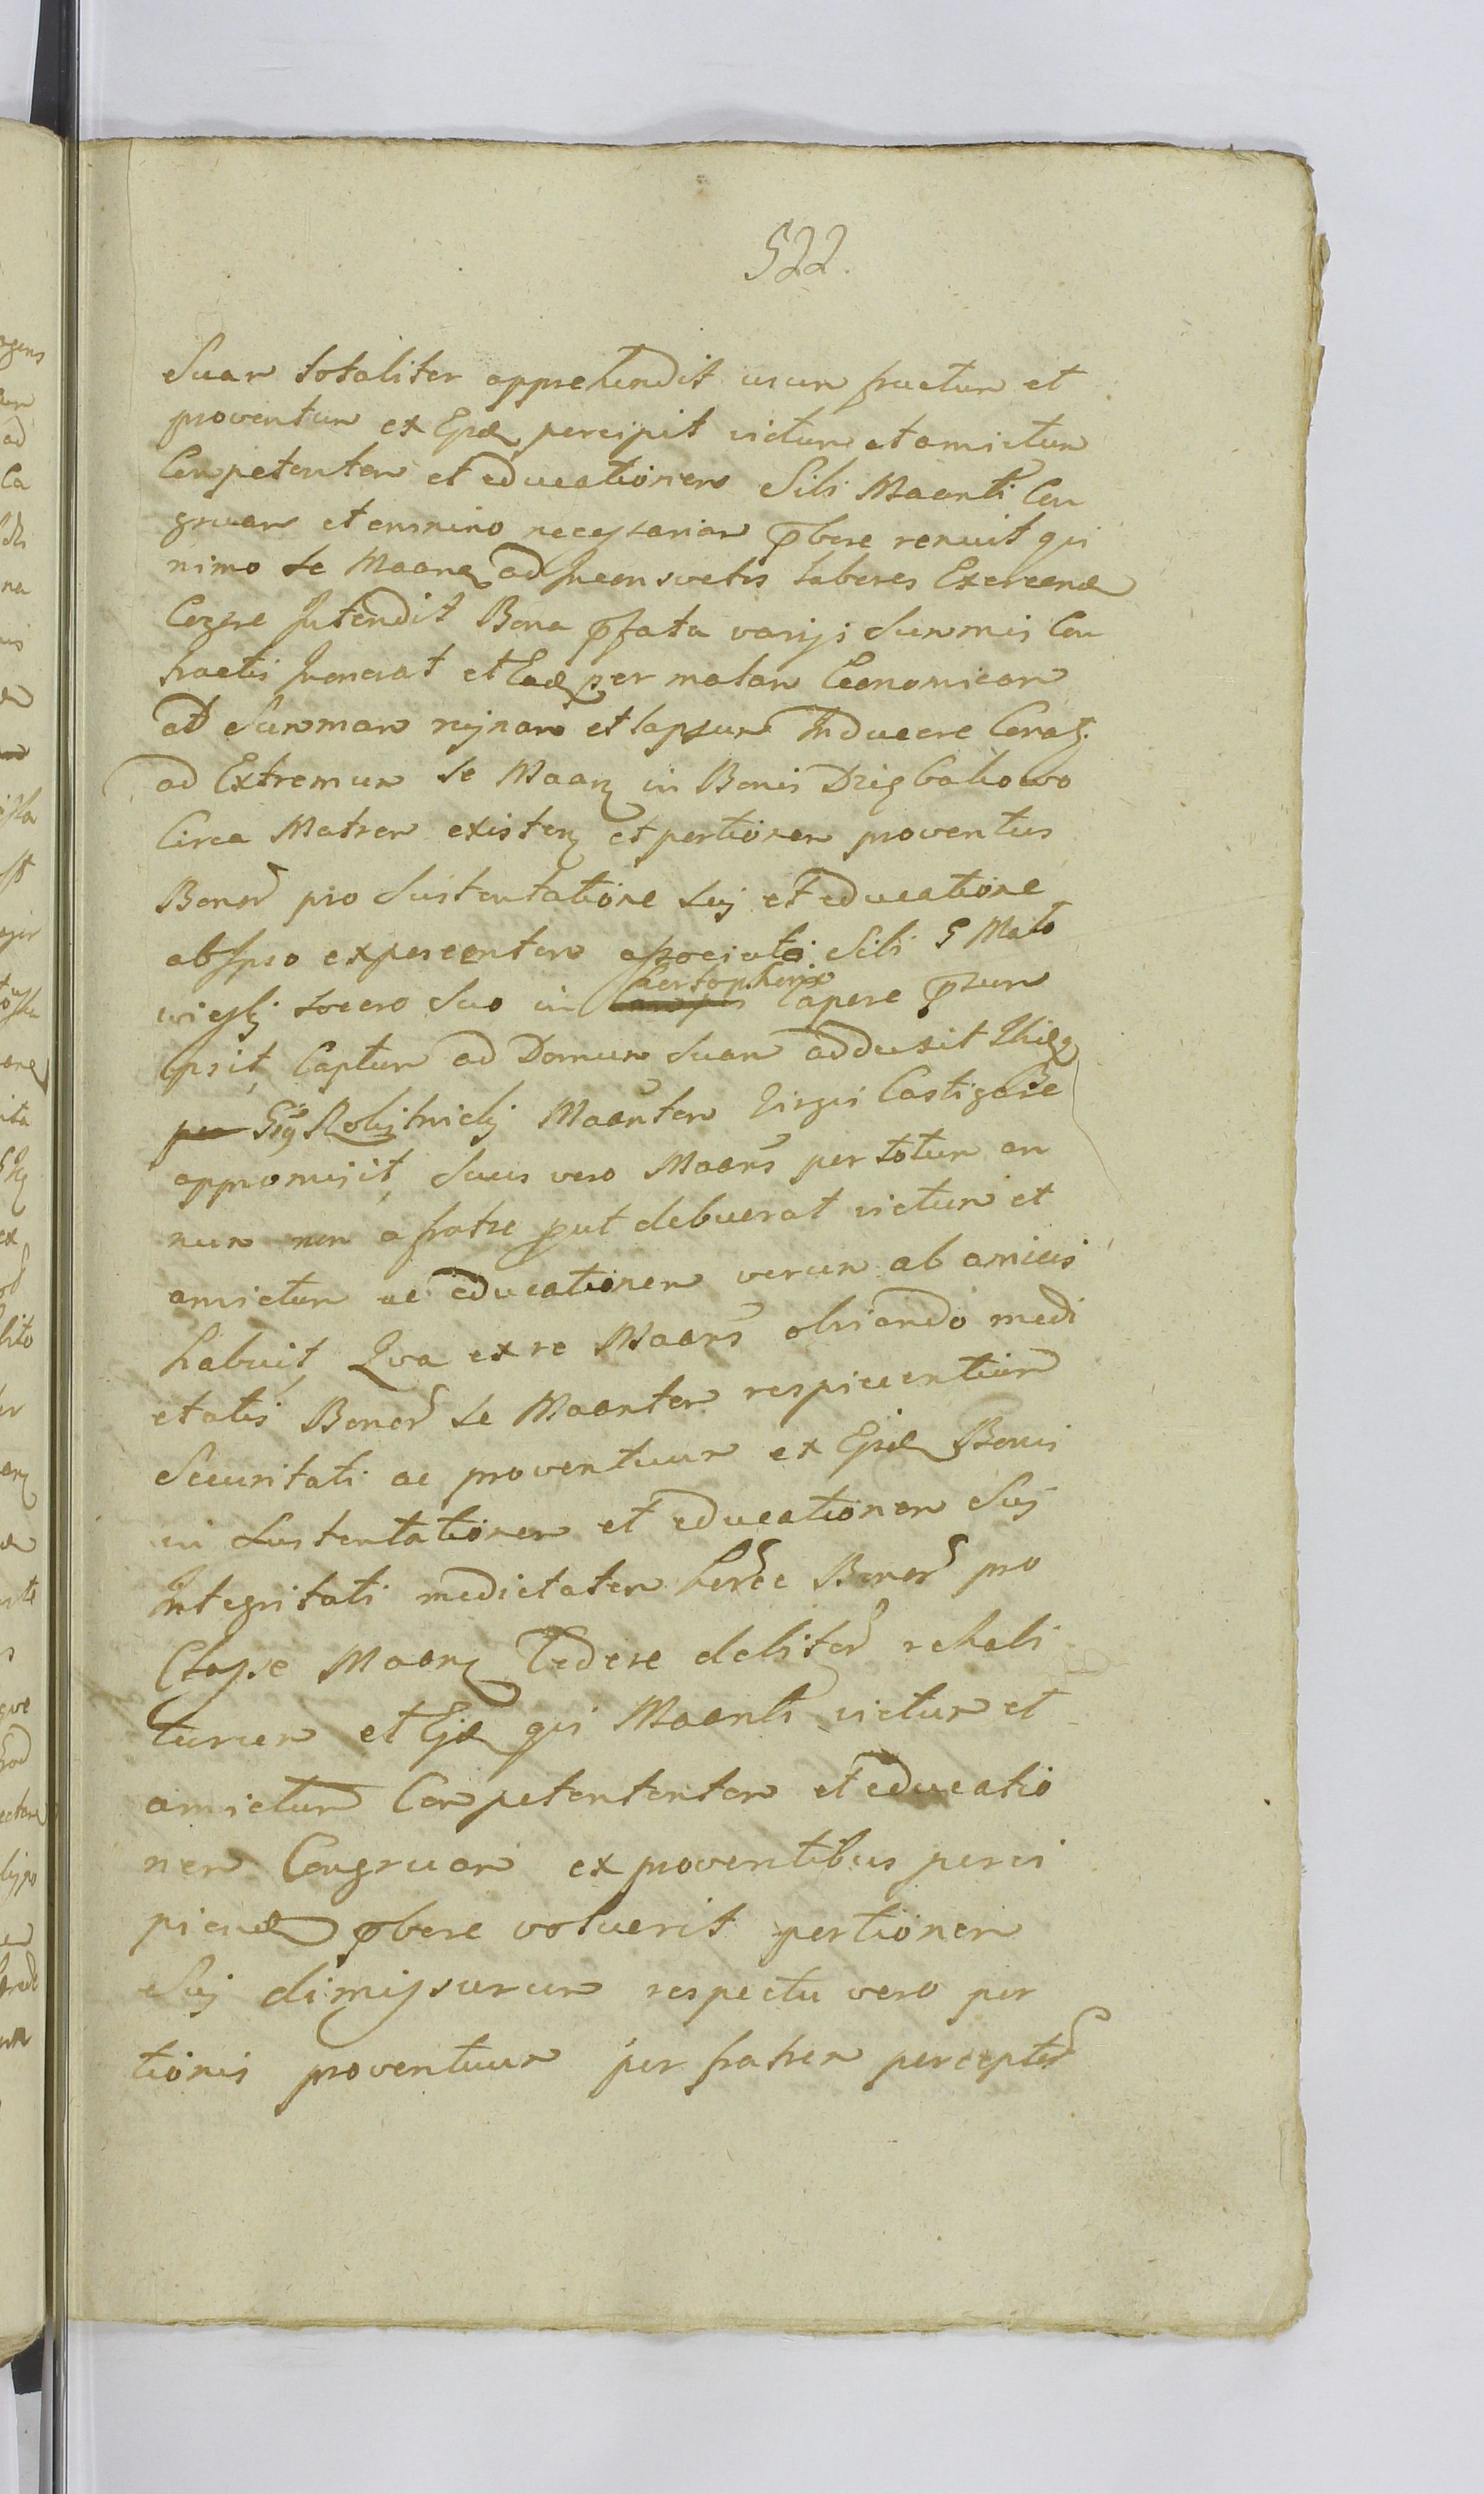 522.
Suam totaliter apprehendit usum fructum et
proventum ex Eisd percipit victum et amictum
Competentem et educationem Sibi Maanti Con
gruam et omnino necessariam pbere renuit qui
nimo se Maan ad Inconsvetos labores Exercend
Cogere Intendit Bona pfata varijs Summis Con
tractis Inonerat et Ead per malam Economicam
ad Summam rujnam et lapsum Inducere Conat.
ad Extremum se Maan in Bonis Dzięgalowo
Circa Matrem existen et portionem proventus
Bonor pro Sustentatione Suj et educatione
ab Ipso exposcentem associato Sibi G Mato
wieski socero Suo in Capere psum
psit, Captum ad Domum Suam adduxit Ibidq
G Rokitnicki Maantem Virgis Castigare
appromisit, Suus vero Maans per totum an
num non a fratre put debuerat victum et
amictum ac educationem verum ab amicis
habuit, Qva ex re Maans obviando medi
etatis Bonor se Maantem respicientium
Securitati ac proventuum ex Eisd Bonis
in Sustentationem et educationem Suj
Integritati medietatem horce Bonor pro
Elapse Maan Cedere debitor rehabi
turum et Eisd qui Maanti victum et
amictum Competententem et educatio
nem Congruam ex proventibus perci
piend pbere voluerit portionem
Suj dimissurum respectu vero por
tionis proventuum per fratrem perceptor